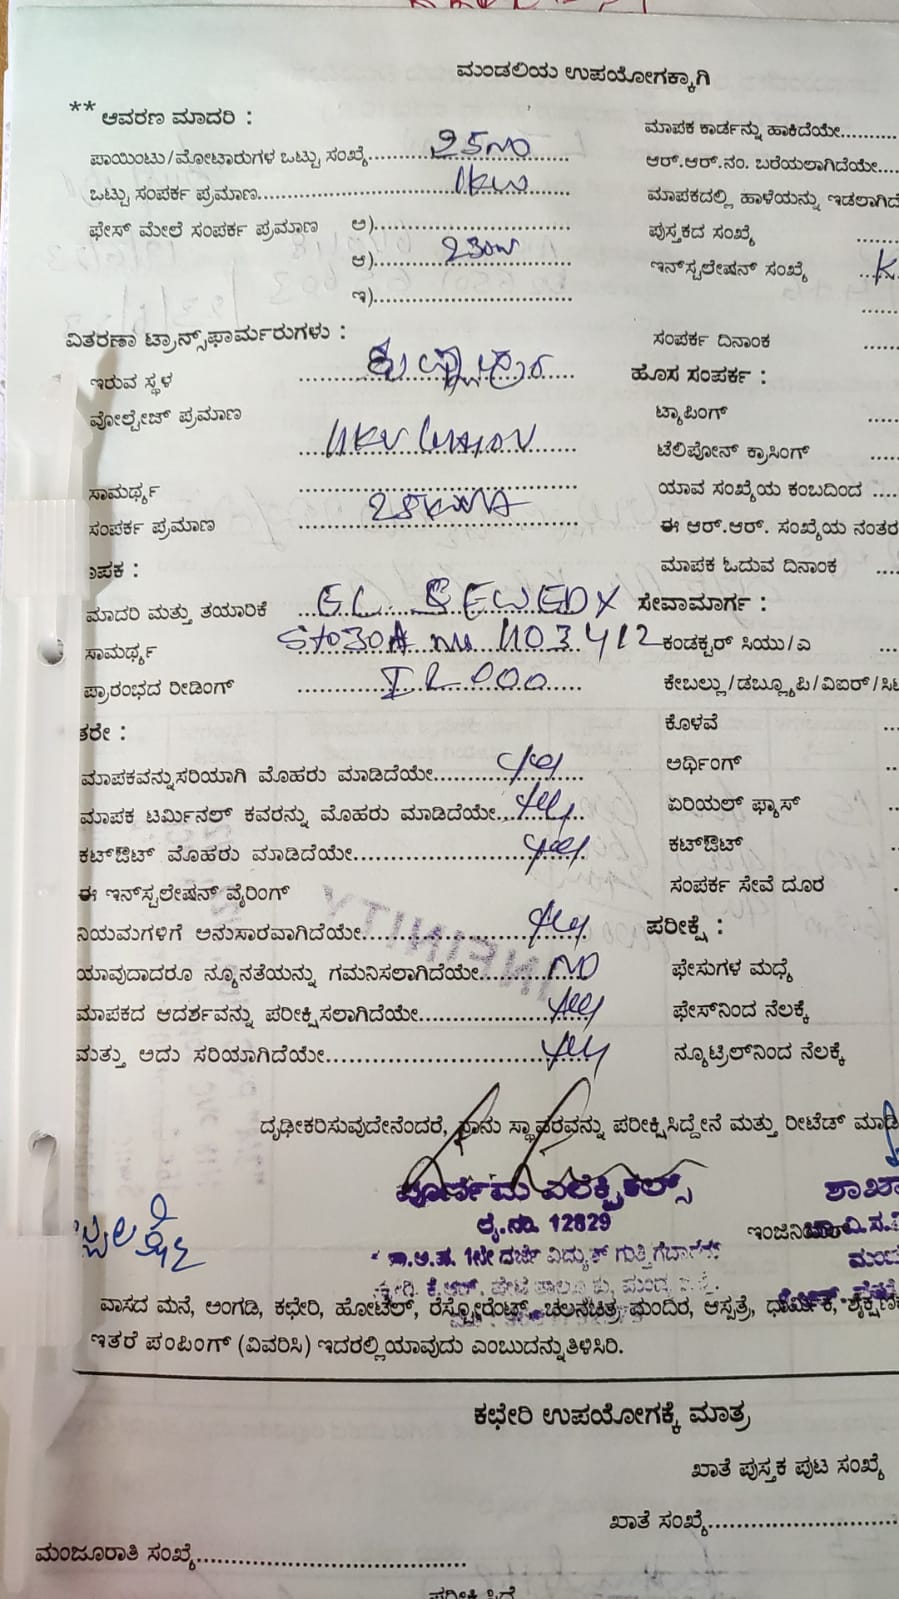 ಮಂಡಲಿಯ ಉಪಯೋಗಕ್ಕಾಗಿ
** ಆವರಣ ಮಾದರಿ :
ಮಾಪಕ ಕಾರ್ಡನ್ನು ಹಾಕಿದೆಯೇ..........
ಪಾಯಿಂಟು/ಮೋಟಾರುಗಳ ಒಟ್ಟು ಸಂಖ್ಯೆ..... 25 NO
ಆರ್.ಆರ್.ನಂ. ಬರೆಯಲಾಗಿದೆಯೇ....
ಒಟ್ಟು ಸಂಪರ್ಕ ಪ್ರಮಾಣ..... 1kw
ಮಾಪಕದಲ್ಲಿ ಹಾಳೆಯನ್ನು ಇಡಲಾಗಿದೆ
ಫೇಸ್ ಮೇಲೆ ಸಂಪರ್ಕ ಪ್ರಮಾಣ ಅ).....
ಪುಸ್ತಕದ ಸಂಖ್ಯೆ ......
ಆ)..... 230w
ಇನ್‌ಸ್ಟಲೇಷನ್ ಸಂಖ್ಯೆ ...K
ಇ).....
ವಿತರಣಾ ಟ್ರಾನ್ಸ್‌ಫಾರ್ಮರುಗಳು :
ಸಂಪರ್ಕ ದಿನಾಂಕ ......
ಇರುವ ಸ್ಥಳ .....
ಹೊಸ ಸಂಪರ್ಕ :
ವೋಲ್ಟೇಜ್ ಪ್ರಮಾಣ
ಟ್ಯಾಪಿಂಗ್ .....
11KV
ಟೆಲಿಪೋನ್ ಕ್ರಾಸಿಂಗ್ .....
ಸಾಮರ್ಥ್ಯ .....
ಯಾವ ಸಂಖ್ಯೆಯ ಕಂಬದಿಂದ ....
ಸಂಪರ್ಕ ಪ್ರಮಾಣ ..... 25KVA
ಈ ಆರ್.ಆರ್. ಸಂಖ್ಯೆಯ ನಂತರ
ಾಪಕ :
ಮಾಪಕ ಓದುವ ದಿನಾಂಕ ....
ಮಾದರಿ ಮತ್ತು ತಯಾರಿಕೆ .....
ಸೇವಾಮಾರ್ಗ :
ಸಾಮರ್ಥ್ಯ 5to30A no 1103412
ಕಂಡಕ್ಟರ್ ಸಿಯು/ಎ ...
ಪ್ರಾರಂಭದ ರೀಡಿಂಗ್ .....
ಕೇಬಲ್ಲು/ಡಬ್ಲ್ಯೂಪಿ/ವಿಐರ್/ಸಿಟ
ತರೇ :
ಕೊಳವೆ ...
ಮಾಪಕವನ್ನುಸರಿಯಾಗಿ ಮೊಹರು ಮಾಡಿದೆಯೇ..... yes
ಅರ್ಥಿಂಗ್ ..
ಮಾಪಕ ಟರ್ಮಿನಲ್ ಕವರನ್ನು ಮೊಹರು ಮಾಡಿದೆಯೇ..... yes
ಏರಿಯಲ್ ಫ್ಯೂಸ್ ..
ಕಟ್‌ಔಟ್ ಮೊಹರು ಮಾಡಿದೆಯೇ..... yes
ಕಟ್‌ಔಟ್ .
ಈ ಇನ್‌ಸ್ಟಲೇಷನ್ ವೈರಿಂಗ್
ಸಂಪರ್ಕ ಸೇವೆ ದೂರ .
ನಿಯಮಗಳಿಗೆ ಅನುಸಾರವಾಗಿದೆಯೇ..... yes
ಪರೀಕ್ಷೆ :
ಯಾವುದಾದರೂ ನ್ಯೂನತೆಯನ್ನು ಗಮನಿಸಲಾಗಿದೆಯೇ..... NO
ಫೇಸುಗಳ ಮಧ್ಯೆ
ಮಾಪಕದ ಆದರ್ಶವನ್ನು ಪರೀಕ್ಷಿಸಲಾಗಿದೆಯೇ..... yes
ಫೇಸ್‌ನಿಂದ ನೆಲಕ್ಕೆ
ಮತ್ತು ಅದು ಸರಿಯಾಗಿದೆಯೇ..... yes
ನ್ಯೂಟ್ರಿಲ್‌ನಿಂದ ನೆಲಕ್ಕೆ
ದೃಢೀಕರಿಸುವುದೇನೆಂದರೆ, ನಾನು ಸ್ಥಾವರವನ್ನು ಪರೀಕ್ಷಿಸಿದ್ದೇನೆ ಮತ್ತು ರೀಟೆಡ್ ಮಾಡಿ
ಪೂರ್ಣಿಮ ಎಲೆಕ್ಟ್ರಿಕಲ್ಸ್
ಶಾಖಾ
ಲೈ.ನಂ. 12829
ಇಂಜಿನಿಯರ್
1ನೇ ದರ್ಜೆ ವಿದ್ಯುತ್ ಗುತ್ತಿಗೆದಾರರು
ವಾಸದ ಮನೆ, ಅಂಗಡಿ, ಕಛೇರಿ, ಹೋಟೆಲ್, ರೆಸ್ಟೋರೆಂಟ್, ಚಲನಚಿತ್ರ ಮಂದಿರ, ಆಸ್ಪತ್ರೆ, ಧಾರ್ಮಿಕ, ಶೈಕ್ಷಣಿಕ
ಇತರೆ ಪಂಪಿಂಗ್ (ವಿವರಿಸಿ) ಇದರಲ್ಲಿಯಾವುದು ಎಂಬುದನ್ನುತಿಳಿಸಿರಿ.
ಕಛೇರಿ ಉಪಯೋಗಕ್ಕೆ ಮಾತ್ರ
ಖಾತೆ ಪುಸ್ತಕ ಪುಟ ಸಂಖ್ಯೆ
ಖಾತೆ ಸಂಖ್ಯೆ.....
ಮಂಜೂರಾತಿ ಸಂಖ್ಯೆ.....